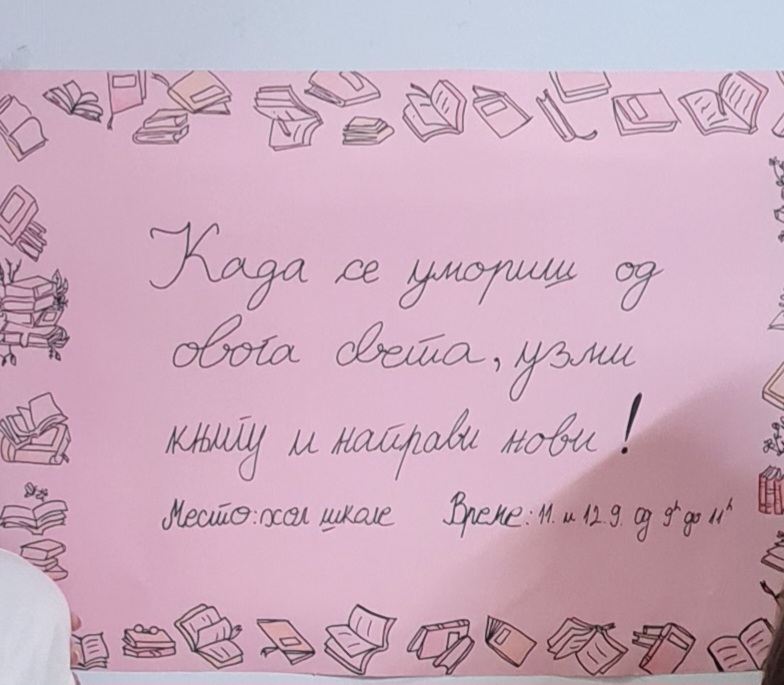 Када се умориш од
овога света, узми
књигу и направи нови!
Место: хол школе Време: 11. и 12.9. од 9h до 11h